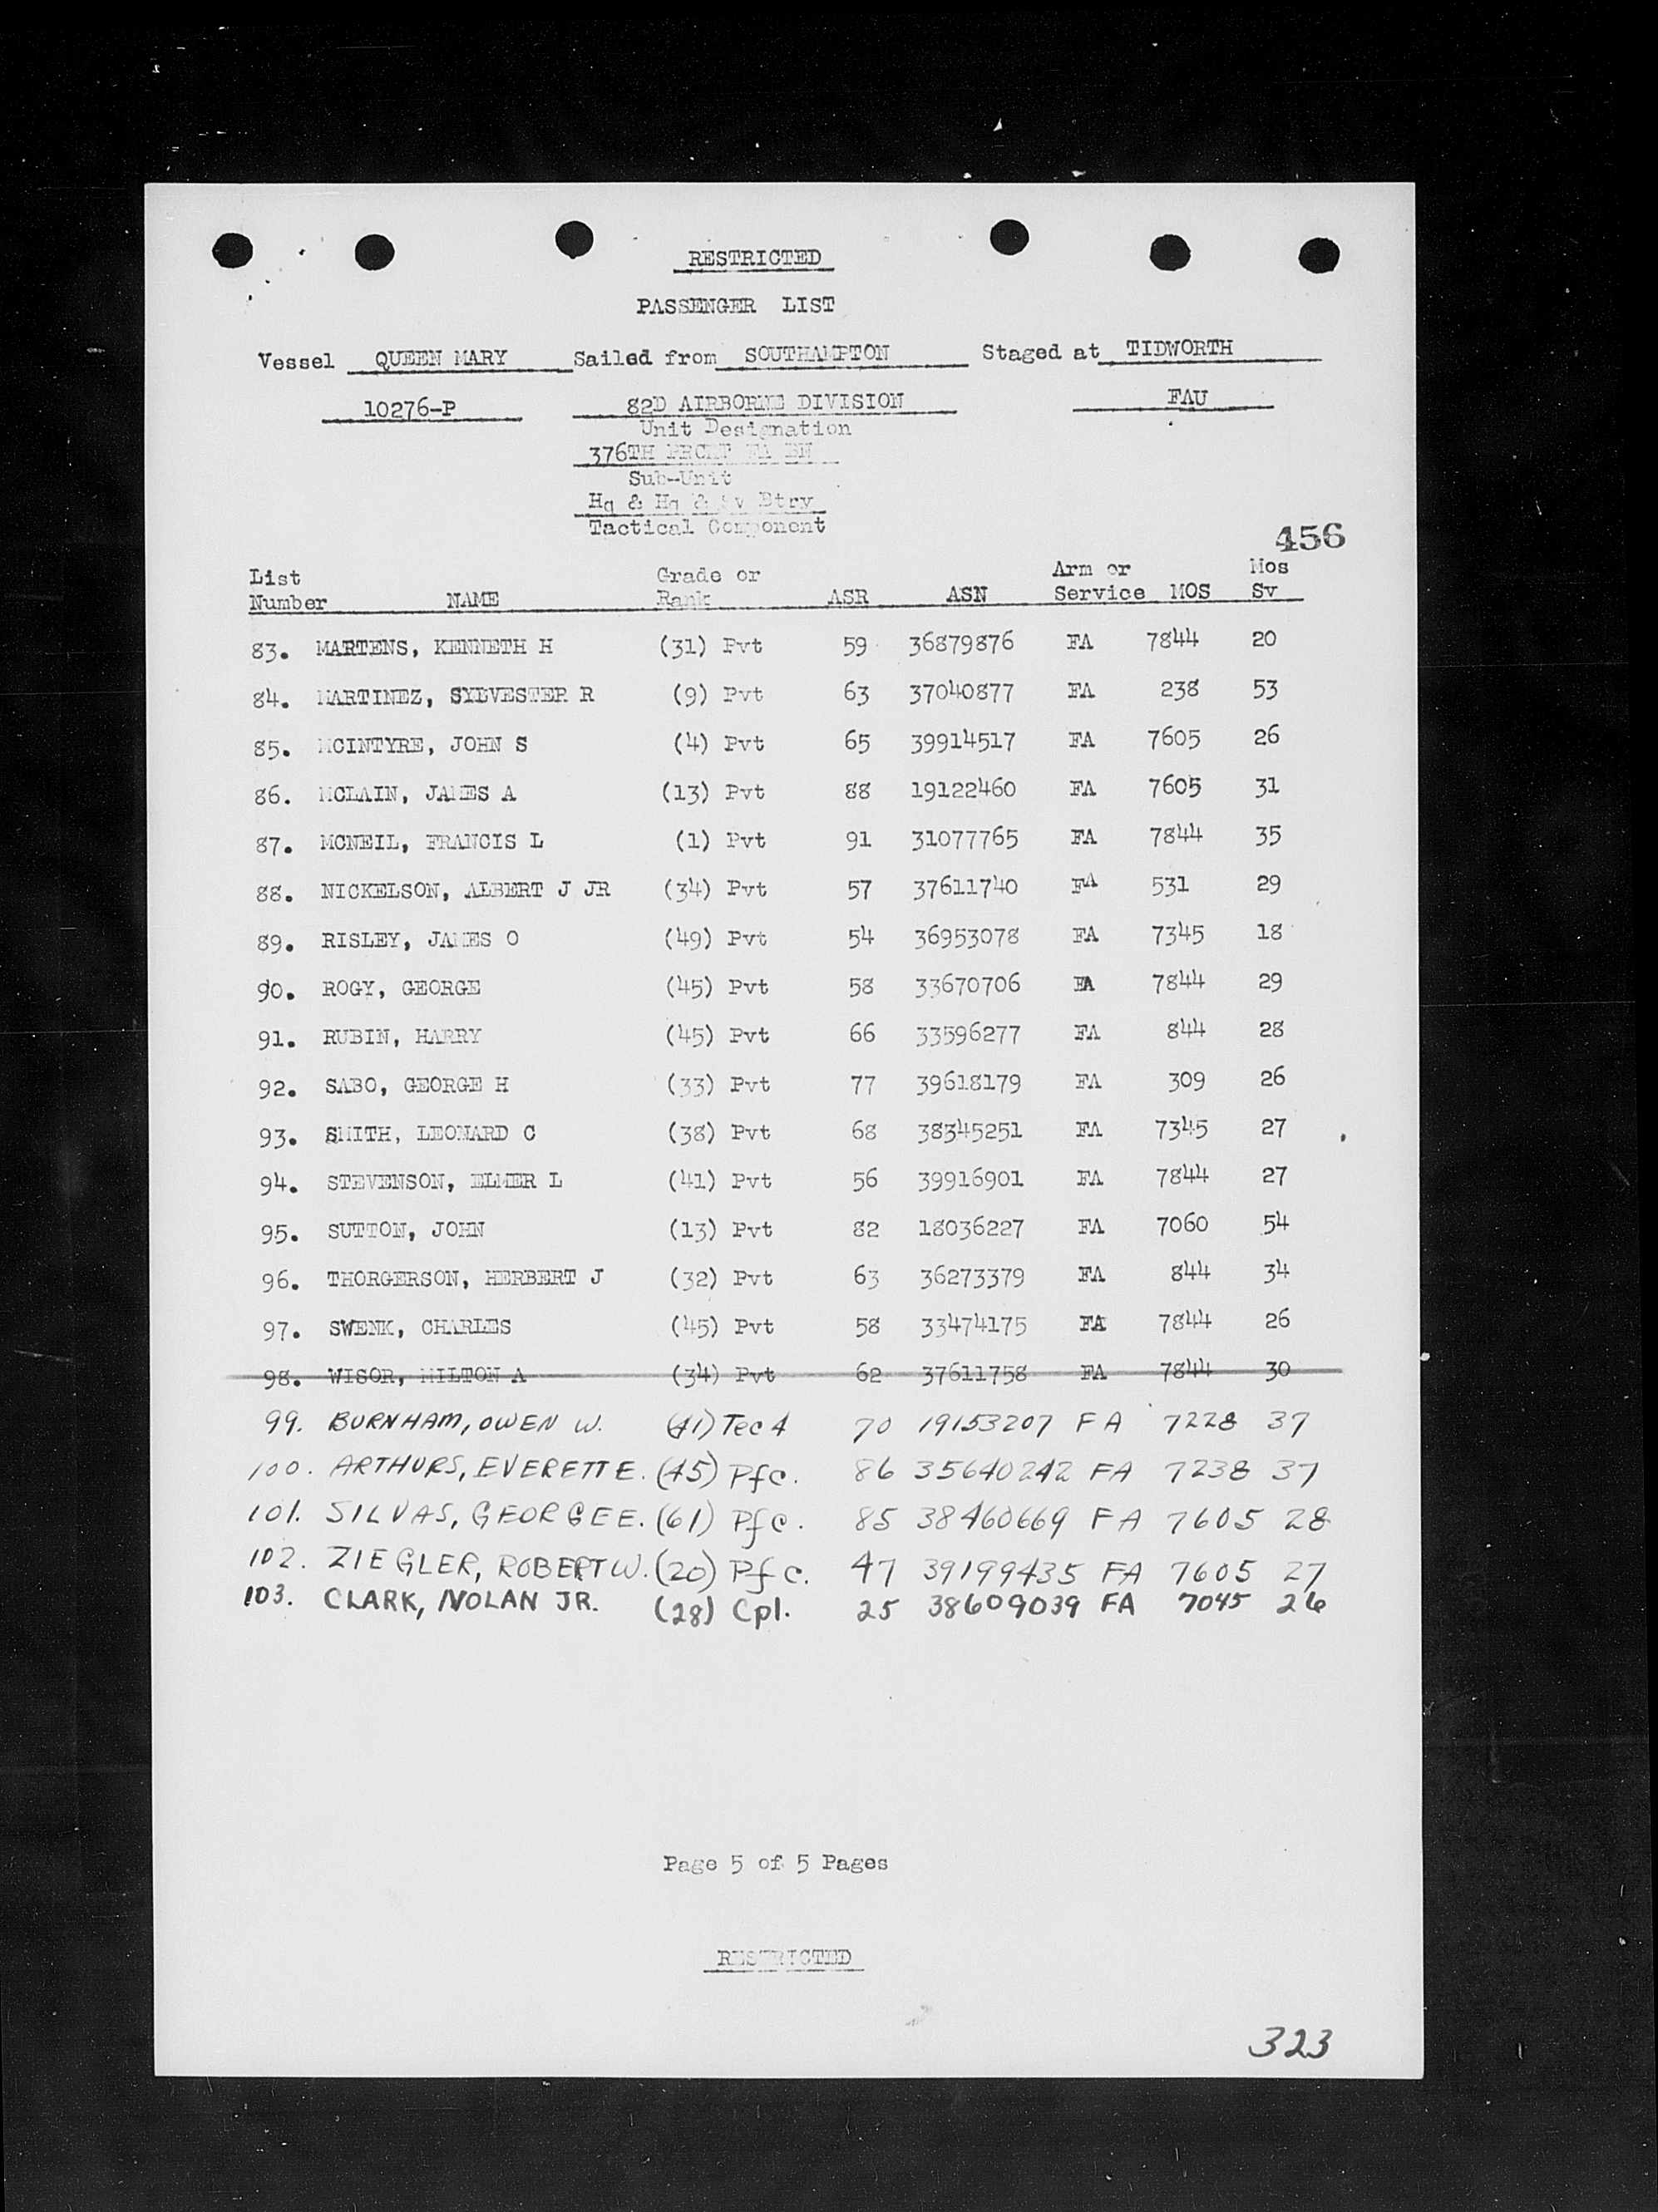 RESTRICTED
PASSENGER LIST
Vessel QUEEN MARY Sailed from SOUTHAMPTON Staged at TIDWORTH
10276-P 82D AIRBORNE DIVISION FAU
Unit Designation
376TH PRCHT FA BN
Sub-Unit
Hq & Hq & Sv Btry
Tactical Component
456
List Grade or Arm or Mos
Number NAME Rank ASR ASN Service MOS Sv
83. MARTENS, KENNETH H (31) Pvt 59 36879876 FA 7844 20
84. MARTINEZ, SYLVESTER R (9) Pvt 63 37040877 FA 238 53
85. MCINTYRE, JOHN S (4) Pvt 65 39914517 FA 7605 26
86. MCLAIN, JAMES A (13) Pvt 88 19122460 FA 7605 31
87. MCNEIL, FRANCIS L (1) Pvt 91 31077765 FA 7844 35
88. NICKELSON, ALBERT J JR (34) Pvt 57 37611740 FA 531 29
89. RISLEY, JAMES O (49) Pvt 54 36953078 FA 7345 18
90. ROGY, GEORGE (45) Pvt 58 33670706 FA 7844 29
91. RUBIN, HARRY (45) Pvt 66 33596277 FA 844 28
92. SABO, GEORGE H (33) Pvt 77 39618179 FA 309 26
93. SMITH, LEONARD C (38) Pvt 68 38345251 FA 7345 27
94. STEVENSON, ELMER L (41) Pvt 56 39916901 FA 7844 27
95. SUTTON, JOHN (13) Pvt 82 18036227 FA 7060 54
96. THORGERSON, HERBERT J (32) Pvt 63 36273379 FA 844 34
97. SWENK, CHARLES (45) Pvt 58 33474175 FA 7844 26
98. WISOR, MILTON A (34) Pvt 62 37611758 FA 7844 30
99. BURNHAM, OWEN W. (41) Tec 4 70 19153207 FA 7228 37
100. ARTHURS, EVERETT E. (45) Pfc. 86 35640242 FA 7238 37
101. SILVAS, GEORGE E. (61) Pfc. 85 38460669 FA 7605 28
102. ZIEGLER, ROBERT W. (20) Pfc. 47 39199435 FA 7605 27
103. CLARK, NOLAN JR. (28) Cpl. 25 38609039 FA 7045 26
Page 5 of 5 Pages
RESTRICTED
323